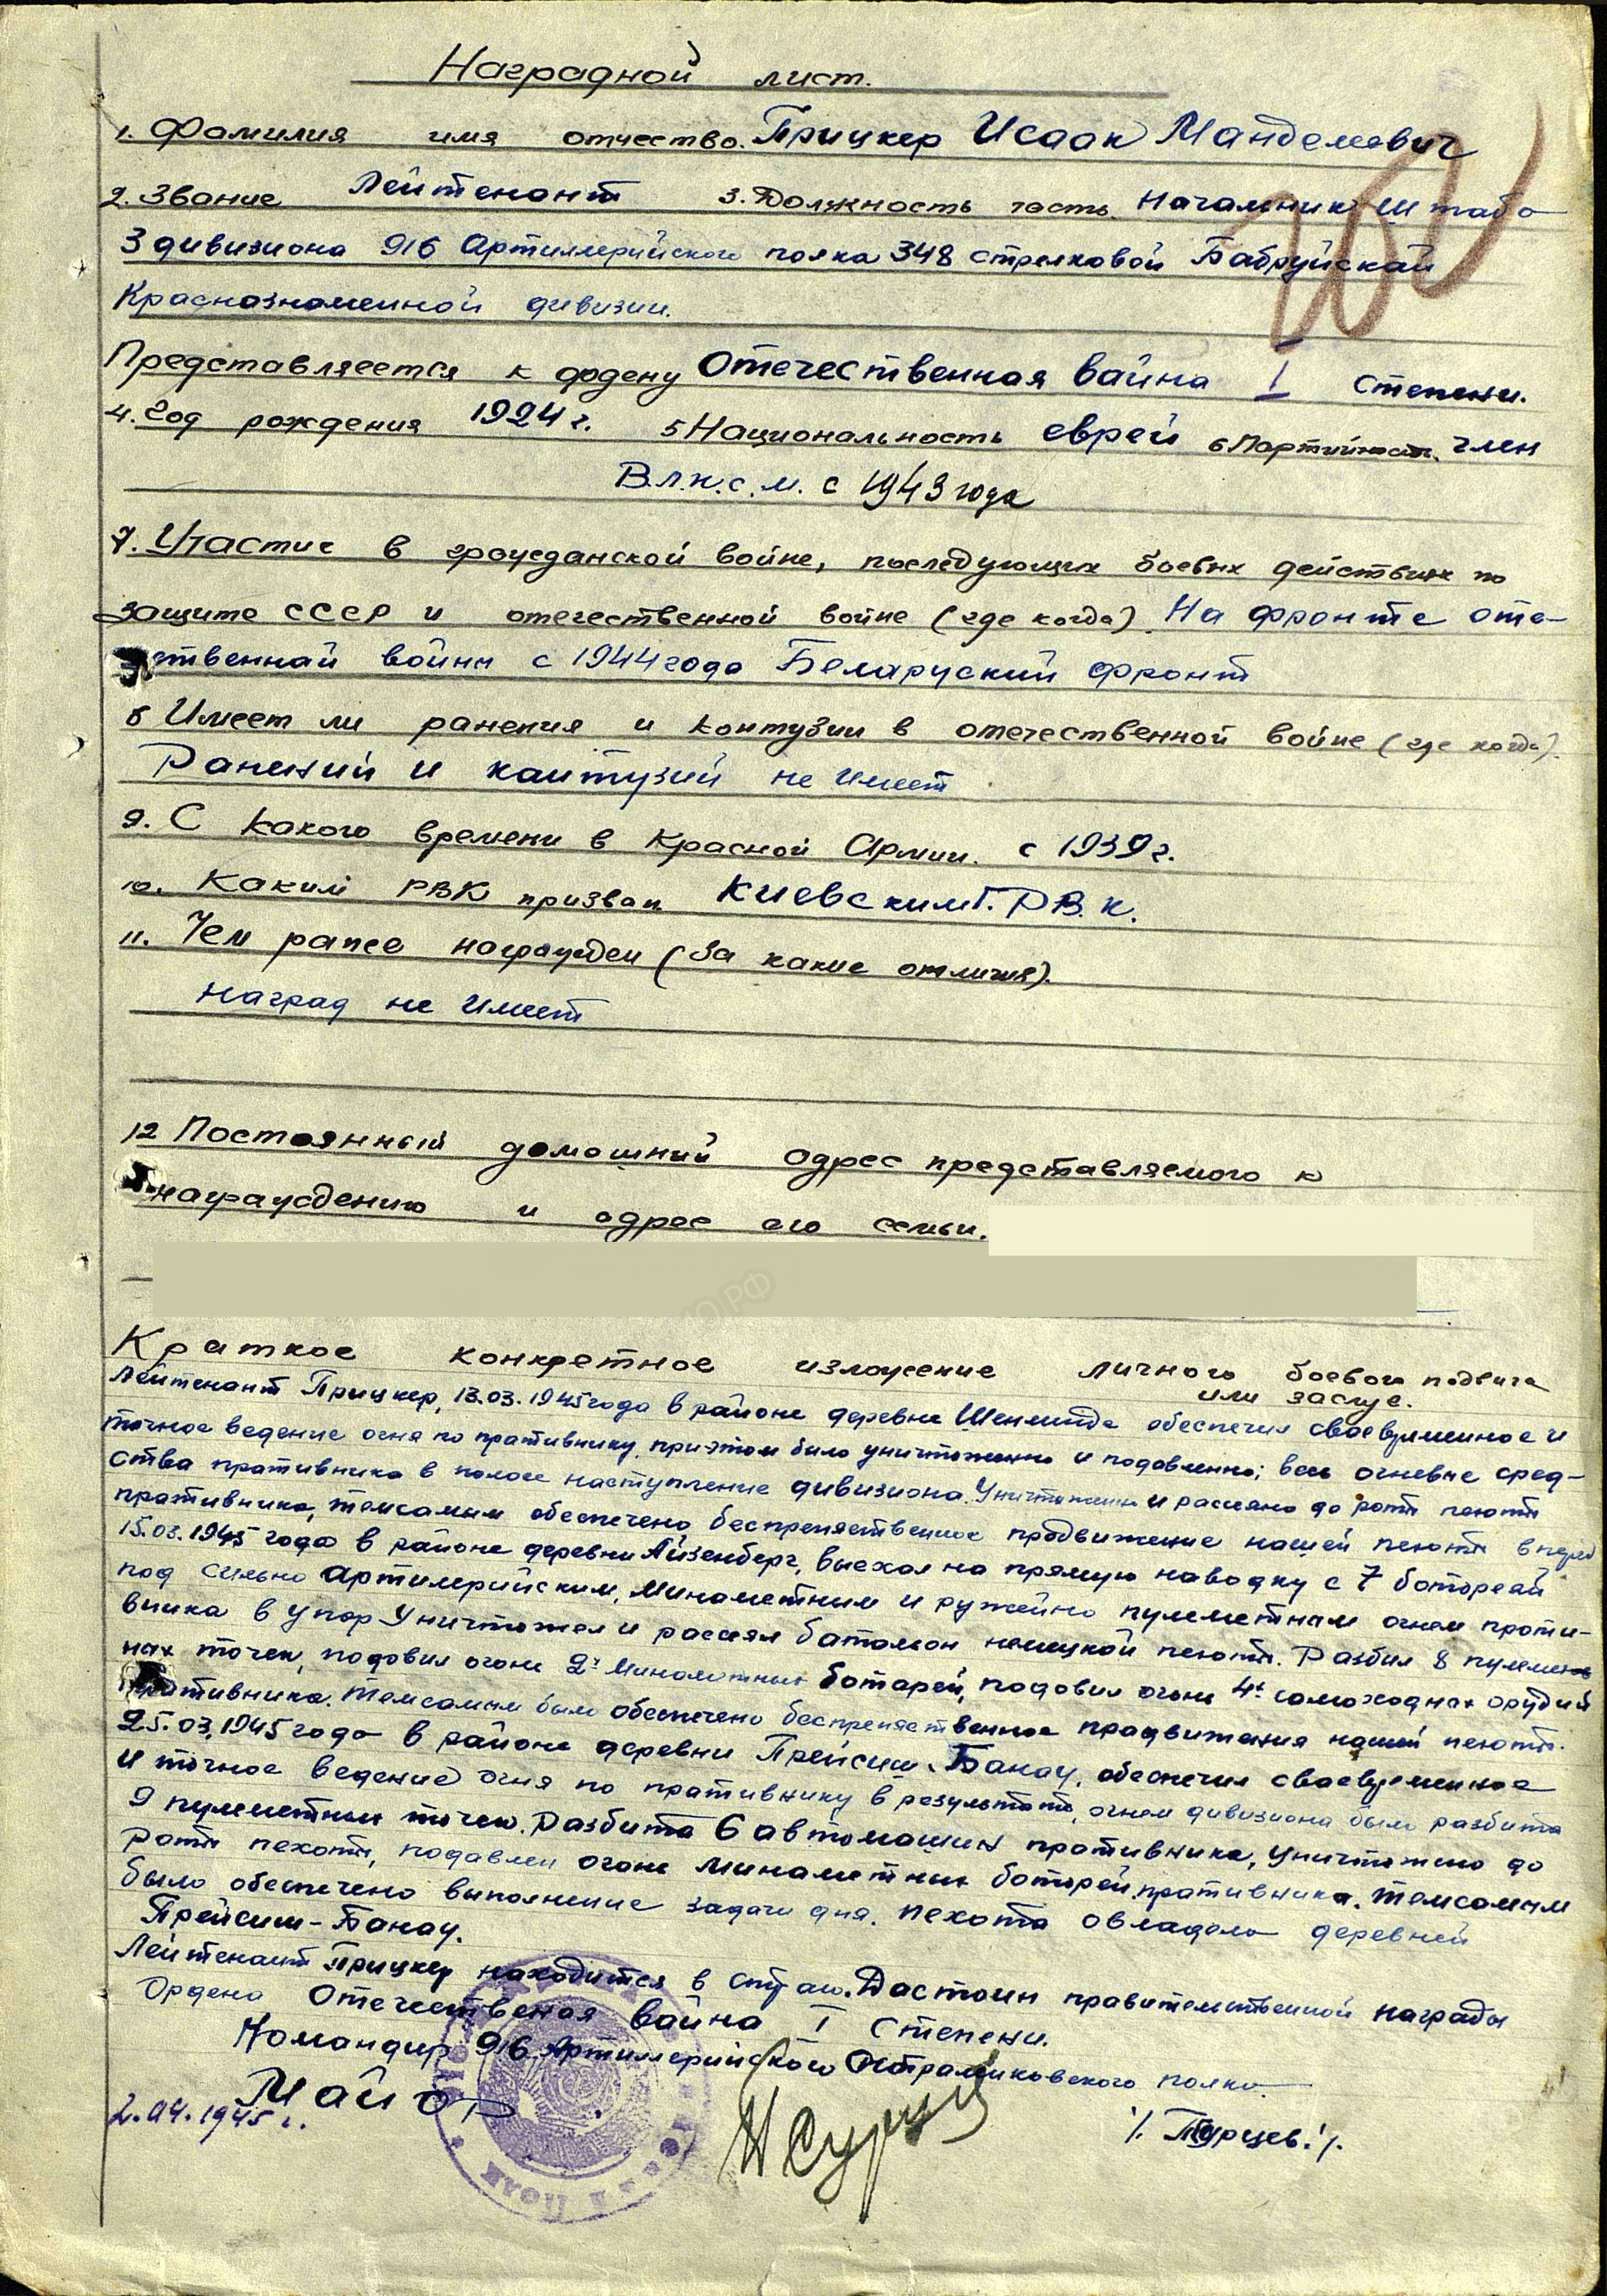 Наградной лист.
1. Фамилия имя отчество. Прицкер Исаак Манделевич
2. Звание Лейтенант 3. Должность часть. Начальник Штаба
3 дивизиона 916 Артиллерийского полка 348 стрелковой Бабруйской
Краснознаменной дивизии.
Представляется к ордену Отечественная вайна I степени.
4. Год рождения 1924 г. 5 Национальность еврей 6 Партийность. член
В.л.к.с.м. с 1943 года
7. Участие в гражданской войне, последующих боевых действиях по
защите СССР и отечественной войне (где когда). На фронте оте-
ственнай войны с 1944 года Беларуский фронт
8 Имеет ли ранения и контузии в отечественной войне (где когда).
Ранений и кантузий не имеет
9. С какого времени в Красной Армии. с 1939 г.
10. Каким РВК призван Киевским Г.Р.В.К.
11. Чем ранее награжден (За какие отличия).
Наград не имеет
12 Постоянный домашний адрес представляемого к
награждению и адрес его семьи.
Краткое конкретное изложение личного боевого подвига
или заслуг.
Лейтенант Прицкер, 13.03.1945 года в районе деревне Шенлинде обеспечил сваевременное и
точное ведение огня по пративнику, приэтом было уничтоженно и подавленно; весь огневые сред-
ства пративника в полосе наступление дивизиона. Уничтоженн и рассеяно до роты пехоты
пративника, темсамым обеспечено беспрепяственное продвижение нашей пехоты вперед
15.03.1945 года в районе деревни Айзенберг, выехал на прямую наводку с 7 батореай
под сильно Артилерийским, Минаметным и ружейно пулеметнам огнем проти-
вника в упор Уничтожел и рассеял баталион немецкой пехоты. Разбил 8 пулемет
ных точек, подовил огонь 2х Минаметных ботарей, подовил огонь 4х самоходных орудий
пративника. Темсамым было обеспечено беспрепяственное прадвижения нашей пехоты.
25.03.1945 года в районе деревни Прейсиш-Банау, обеспечил сваевременное
и точное ведение огня по пративнику в результате, огнем дивизиона было разбита
9 пулеметных точек. Разбита 6 автомашин пративника, Уничтожено до
роты пехоты, подавлен огонь минаметных боторей пративника. Темсамым
было обеспечено выполнение задачи дня. Пехота овладела деревней
Прейсиш-Банау.
Лейтенант Прицкер находится в строю. Дастоин правительственной награды
Ордена Отечественая вайна I степени.
Командир 916 Артилерийского полка.
Майор
2.04.1945 г.